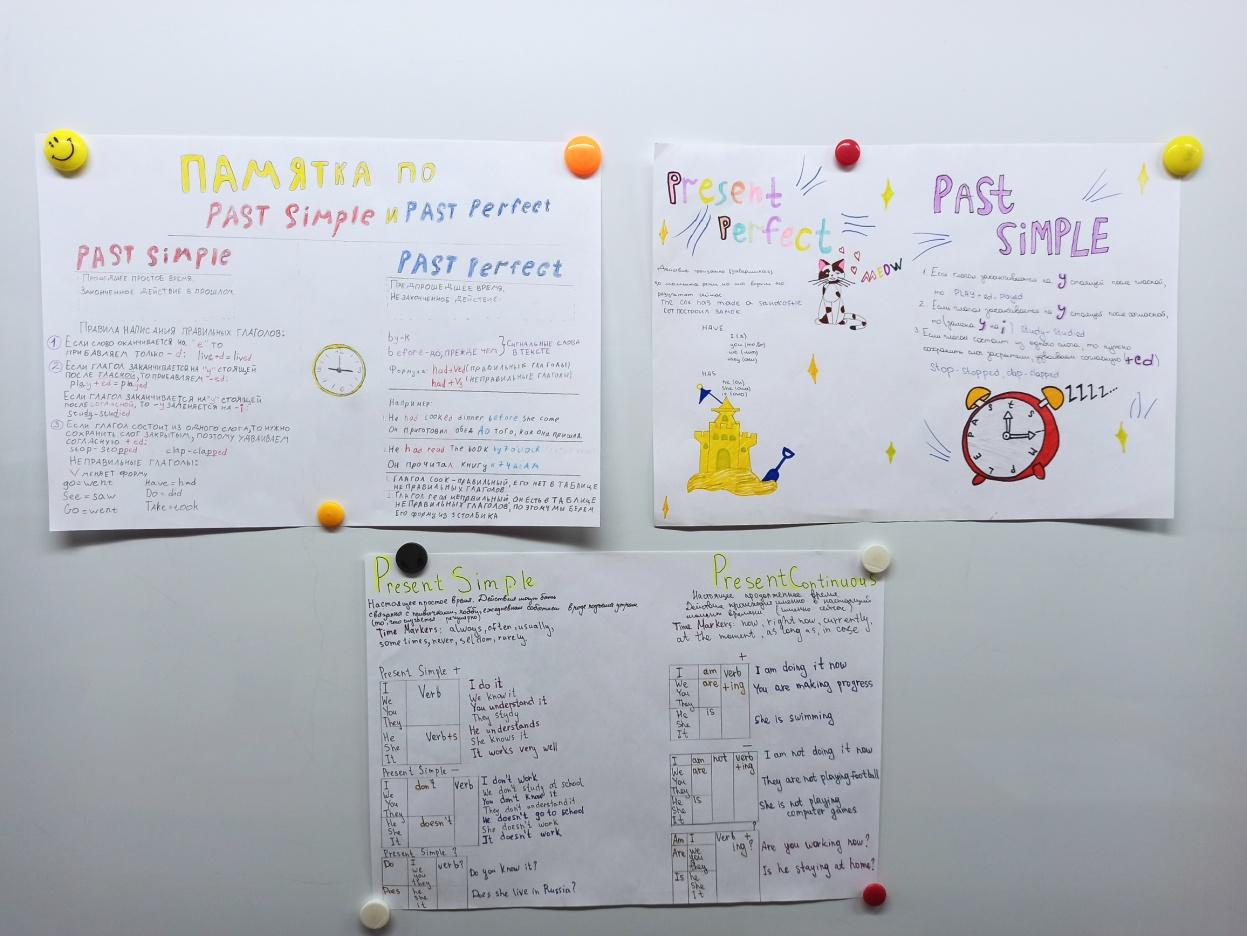 ПАМЯТКА ПО
PAST Simple и PAST Perfect
PAST Simple
Прошедшее простое время.
Законченное действие в прошлом.
Правила написания правильных глаголов:
1 Если слово оканчивается на "e" то
прибавляем только -d: live+d=lived
2 Если глагол заканчивается на "y" стоящей
после гласной, то прибавляем "-ed:
play+ed=played
Если глагол заканчивается на "y" стоящей
после согласной, то -y заменяется на -i:
study-studied
3 Если глагол состоит из одного слога, то нужно
сохранить слог закрытым, поэтому удваиваем
согласную +ed:
stop-stopped clap-clapped
Неправильные глаголы:
V меняет форму
go=went Have=had
See=saw Do=did
Go=went Take=took
PAST Perfect
Предпрошедшее время.
Незаконченное действие.
by-к
before-до, прежде чем } Сигнальные слова
в тексте
Формула: had+Ved(правильные глаголы)
had+V3(неправильные глаголы)
Например:
He had cooked dinner before she come
Он приготовил обед до того, как она пришла.
He had read the book by 7 o'clock
Он прочитал книгу к 7 часам
1. Глагол cook-правильный, его нет в таблице
неправильных глаголов.
2. Глагол read неправильный, он есть в таблице
неправильных глаголов, поэтому мы берем
его форму из 3 столбика
Present
Perfect
MEOW
результат сейчас
The cat has made a sandcastle
Кот построил замок
HAVE
I (я)
you
we (мы)
they (они)
HAS
he (он)
she (она)
it (оно)
PAST
SiMPLE
1. Если глагол заканчивается на y стоящей после гласной,
то PLAY+ed=played
2. Если глагол заканчивается на y стоящей после согласной,
то (замена y на i) study-studied
3. Если глагол состоит из одного слога, то нужно
сохранить слог закрытым, удваиваем согласную +ed)
stop-stopped, clap-clapped
ZZZZ..
PAST SIMPLE
Present Simple
Настоящее простое время. Действия могут быть
связаны с привычками, хобби, ежедневными событиями вроде подъёма утром
(то, что случается регулярно)
Time Markers: always, often, usually,
sometimes, never, seldom, rarely.
Present Simple +
I Verb I do it
We We know it
You You understand it
They They study
He Verb+s He understands
She She knows it
It It works very well
Present Simple −
I don't verb I don't work
We We don't study at school
You You don't know it
They They don't understand it
He doesn't He doesn't go to school
She She doesn't work
It It doesn't work
Present Simple ?
Do I we you they verb? Do you know it?
Does he she it Does she live in Russia?
Present Continuous
Настоящее продолженное время.
Действие происходит именно в настоящий
момент времени (именно сейчас)
Time Markers: now, right now, currently,
at the moment, as long as, in case
+
I am verb +ing I am doing it now
We You They are You are making progress
He She It is She is swimming
−
I am not verb +ing I am not doing it now
We You They are They are not playing football
He She It is She is not playing
computer games
?
Am I verb + ing? Are you working now?
Are we you they Is he staying at home?
Is he she it